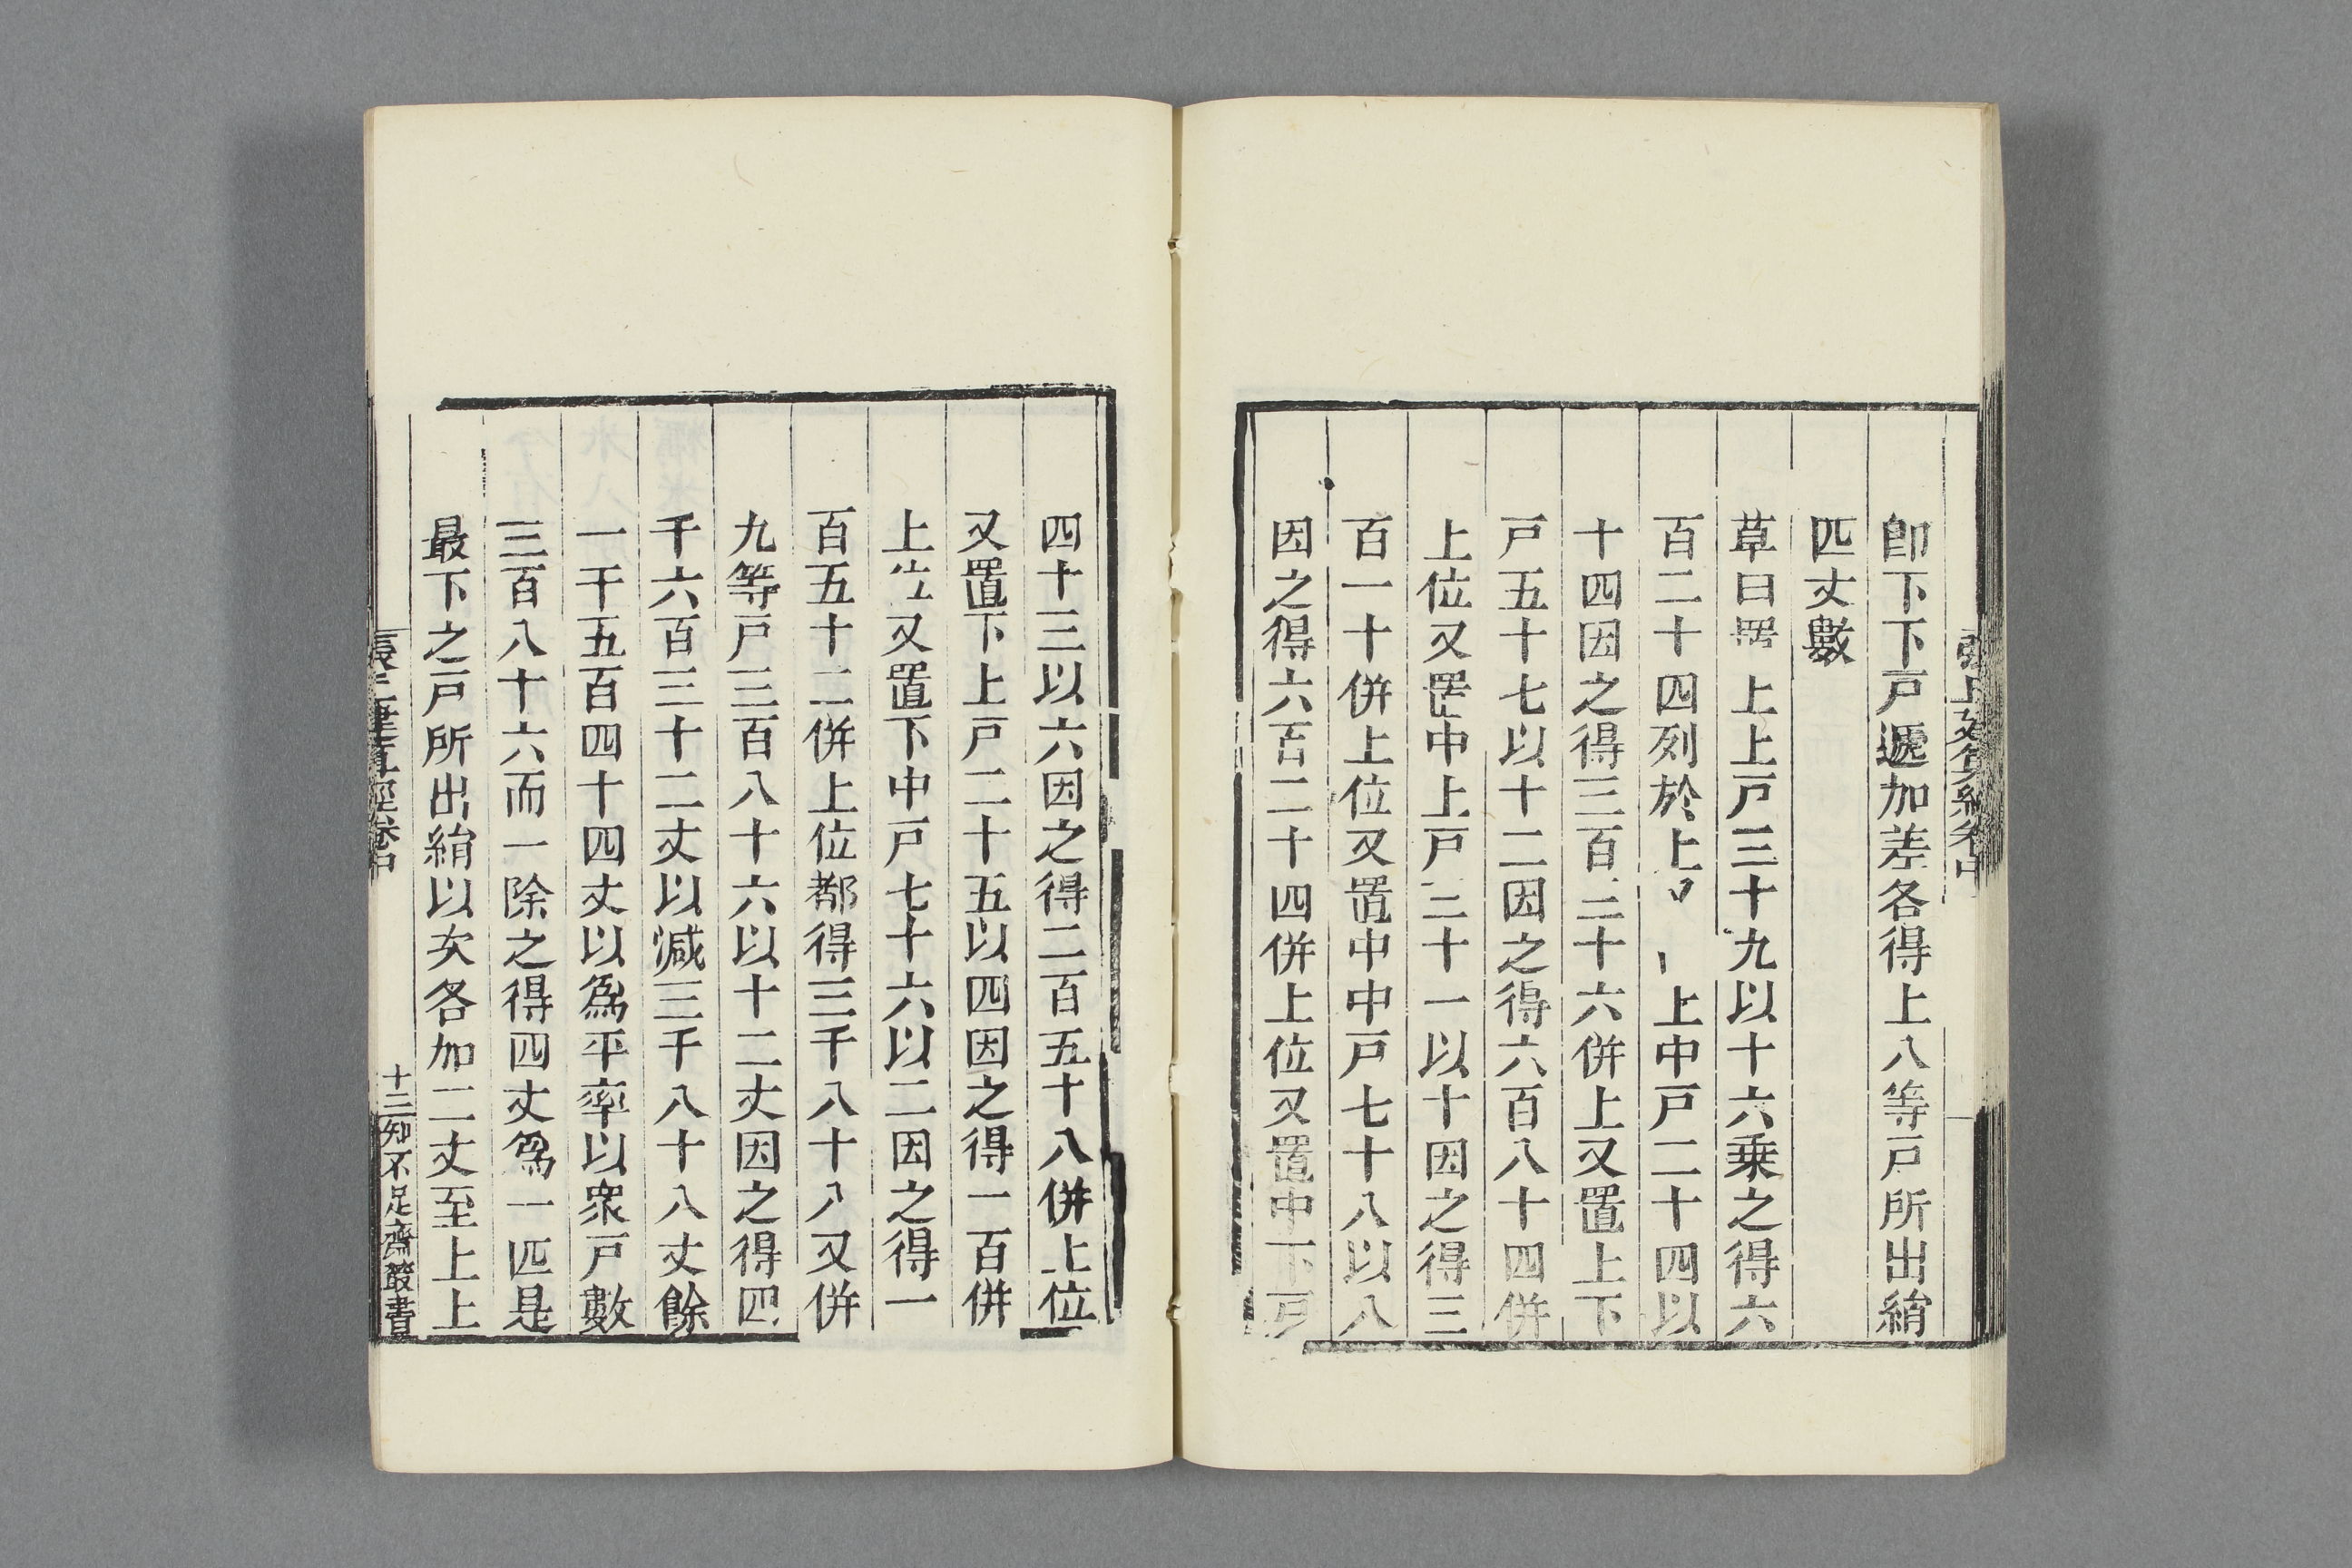 卽下下戸遞加差各得上八等戸所出絹
匹丈數
草曰置上上戸三十九以十六乗之得六
百二十四列於上 上中戸二十四以
十四因之得三百三十六併上又置上下
戸五十七以十二因之得六百八十四併
上位又置中上戸三十一以十因之得三
百一十併上位又置中中戸七十八以八
因之得六百二十四併上位又置中下戸
四十三以六因之得二百五十八併上位
又置下上戸二十五以四因之得一百併
上位又置下中戸七十六以二因之得一
百五十二併上位都得三千八十八又併
九等戸三百八十六以十二丈因之得四
千六百三十二丈以減三千八十八丈餘
一千五百四十四丈以爲平率以衆戸數
三百八十六而一除之得四丈爲一匹是
最下之戸所出絹以次各加二丈至上上
張丘建算經卷中
十三
知不足齋叢書